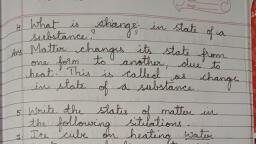 4. What is change in state of a
substance?
Ans Matter changes its state from
one form to another, due to
heat. This is called as change
in state of a substance.
5. Write the states of matter in
the following situations.
1. Ice cube on heating water